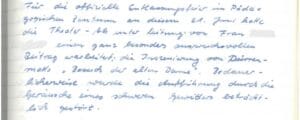 Für die offizielle Einweihungsfeier im Päda-
gogischen Zentrum an diesem 21. Juni hatte
die Theater-AG unter Leitung von Frau
einen ganz besonders anspruchsvollen
Beitrag vorbereitet: die Inszenierung von Dürren-
matts „Besuch der alten Dame". Bedauer-
licherweise wurde die Aufführung durch die
Geräusche eines schweren Gewitters beträcht-
lich gestört.